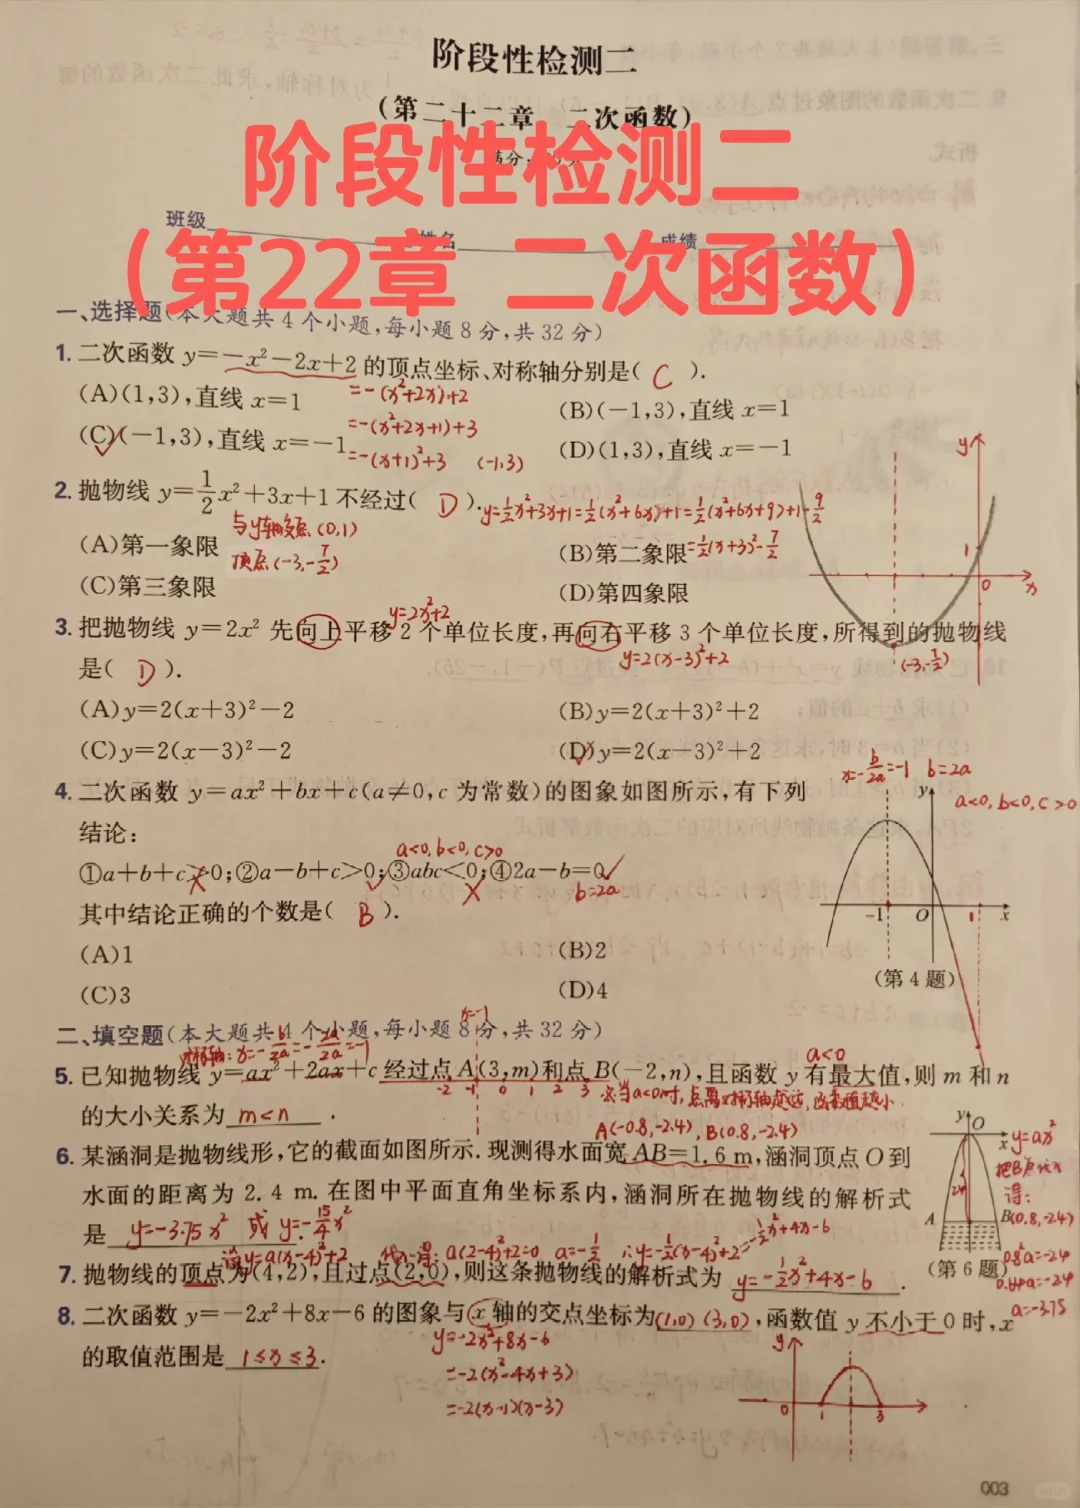 阶段性检测二
(第二十二章 二次函数)
阶段性检测二
(第22章 二次函数)
班级
姓名
成绩
一、选择题(本大题共4个小题,每小题8分,共32分)
1. 二次函数 y=-x²-2x+2 的顶点坐标、对称轴分别是( C ).
=-(x²+2x)+2
(A)(1,3),直线 x=1
(B)(-1,3),直线 x=1
=-(x²+2x+1)+3
(C)(-1,3),直线 x=-1
(D)(1,3),直线 x=-1
=-(x+1)²+3 (-1,3)
2. 抛物线 y=1/2x²+3x+1 不经过( D ).
y=1/2x²+3x+1=1/2(x²+6x)+1=1/2(x²+6x+9)+1-9/2
=1/2(x+3)²-7/2
与y轴交点(0,1)
顶点(-3,-7/2)
(A)第一象限
(B)第二象限
(C)第三象限
(D)第四象限
y
1
0
x
(-3,-7/2)
3. 把抛物线 y=2x² 先向上平移2个单位长度,再向右平移3个单位长度,所得到的抛物线
y=2x²+2
y=2(x-3)²+2
是( D ).
(A)y=2(x+3)²-2
(B)y=2(x+3)²+2
(C)y=2(x-3)²-2
(D)y=2(x-3)²+2
4. 二次函数 y=ax²+bx+c(a≠0,c为常数)的图象如图所示,有下列
结论:
x=-b/2a=-1 b=2a
a<0,b<0,c>0
a<0,b<0,c>0
①a+b+c>0;②a-b+c>0;③abc<0;④2a-b=0
b=2a
其中结论正确的个数是( B ).
(A)1
(B)2
(C)3
(D)4
y
-1
O
1
x
(第4题)
二、填空题(本大题共4个小题,每小题8分,共32分)
x=-1
对称轴:x=-b/2a=-2a/2a=-1
a<0
5. 已知抛物线 y=ax²+2ax+c 经过点 A(3,m)和点 B(-2,n),且函数 y 有最大值,则 m 和 n
-2 -1 0 1 2 3
当a<0时,点离对称轴越远,函数值越小
的大小关系为 m<n .
A(-0.8,-2.4),B(0.8,-2.4)
6. 某涵洞是抛物线形,它的截面如图所示.现测得水面宽 AB=1.6 m,涵洞顶点 O 到
水面的距离为 2.4 m.在图中平面直角坐标系内,涵洞所在抛物线的解析式
是 y=-3.75x² 或 y=-15/4x² .
y
O
x
A
B
(0.8,-2.4)
y=ax²
得:
0.8²a=-2.4
0.64a=-2.4
a=-3.75
(第6题)
设y=a(x-4)²+2 代入得:a(2-4)²+2=0 a=-1/2 ∴y=-1/2(x-4)²+2=-1/2x²+4x-6
7. 抛物线的顶点为(4,2),且过点(2,0),则这条抛物线的解析式为 y=-1/2x²+4x-6 .
8. 二次函数 y=-2x²+8x-6 的图象与 x 轴的交点坐标为 (1,0) (3,0) ,函数值 y 不小于0时,x
的取值范围是 1≤x≤3 .
y=-2x²+8x-6
=-2(x²-4x+3)
=-2(x-1)(x-3)
y
0
1
3
003